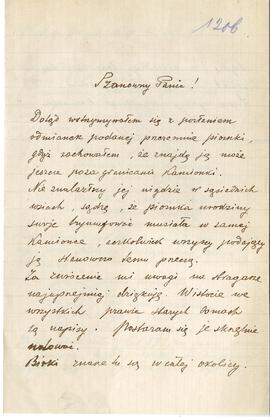 1206
Szanowny Panie!
Dotąd wstrzymywałem się z posłaniem
odmianek podanej przezemnie piosnki,
gdyż zachowałem, że znajdę ją może
jeszcze poza granicami Kamionki.
Nie znalazłszy jej nigdzie w sąsiednich
wsiach, sądzę, że piosnka urodziny
swoje tryumfować musiała w samej
Kamionce, wszyscy podający
ją stanowczo temu przeczą.
Za zwrócenie mi uwagi na stragarze
najuprzejmiej dziękuję. Wistocie we
wszystkich prawie starych domach
są napisy. Postaram się je skrzętnie
notować.
znane tu są w całej okolicy.